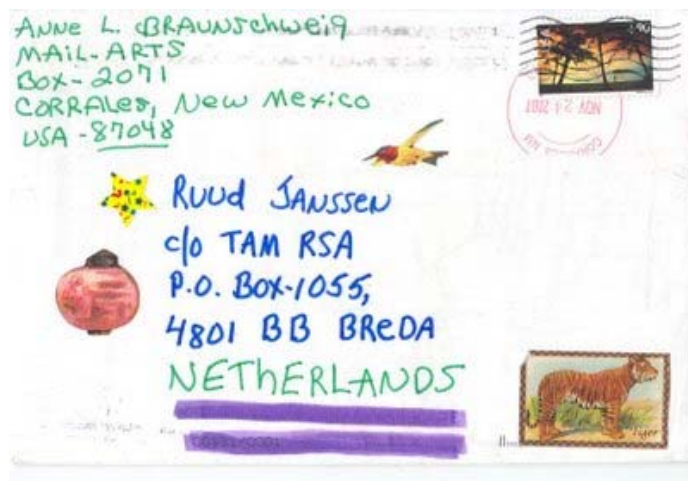 Anne L. BRAUNSchweig
MAIL-ARTS
Box-2071
CORRALes, New Mexico
USA-87048
.90
NOV 24 2001
Ruud JANSSEN
c/o TAM RSA
P.O. Box-1055,
4801 BB BReDA
NETheRLANDS
Tiger